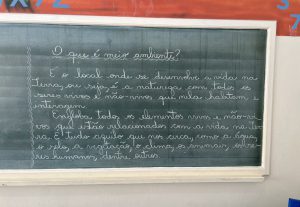 O que é meio ambiente?
É o local onde se desenvolve a vida na
terra, ou seja, é a natureza com todos os
seres vivos e não-vivos que nela habitam e
interagem.
Engloba todos os elementos vivos e não-vi-
vos que estão relacionados com a vida na ter-
ra. É tudo aquilo que nos cerca, como a água,
o solo, a vegetação, o clima, os animais, os se-
res humanos, dentre outros.